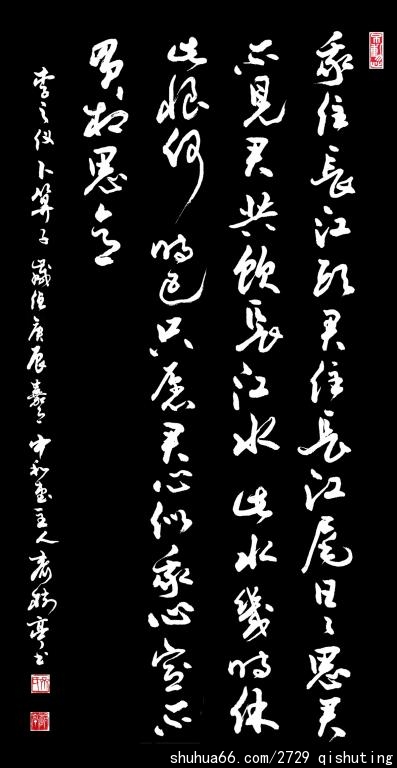 我住長江頭君住長江尾日々思君
不見君共飲長江水此水幾時休
此恨何時已只愿君心似我心定不
負相思意
李之仪卜算子 歲在庚辰 中和 主人齐樹亭书
shuhua66.com/2729 qishuting